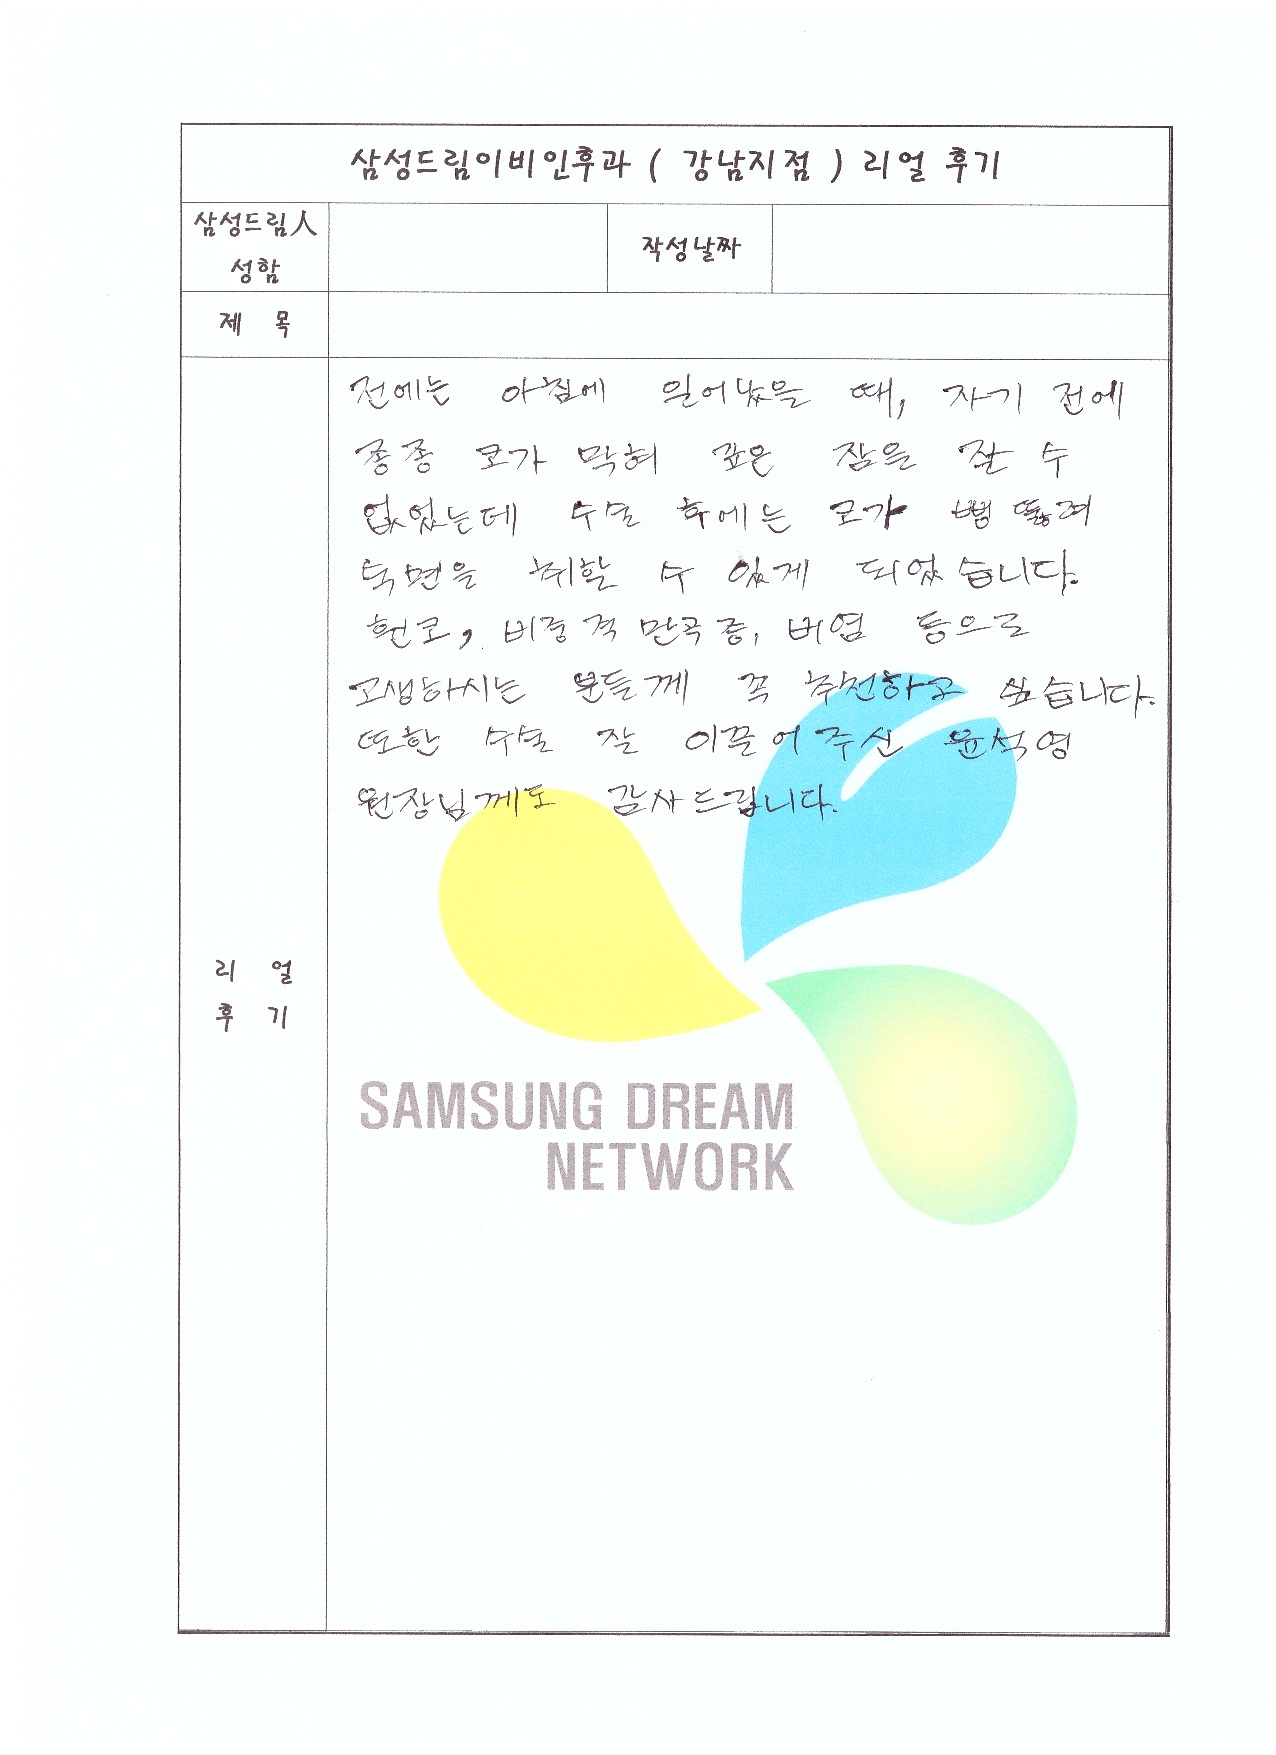 삼성드림이비인후과 ( 강남지점 ) 리얼 후기
삼성드림人
성함
작성날짜
제 목
전에는 아침에 일어났을 때, 자기 전에
종종 코가 막혀 깊은 잠을 잘 수
없었는데 수술 후에는 코가 뻥 뚫려
숙면을 취할 수 있게 되었습니다.
휜코, 비중격 만곡증, 비염 등으로
고생하시는 분들께 꼭 추천하고 싶습니다.
또한 수술 잘 이끌어주신 윤석영
원장님께도 감사드립니다.
리 얼
후 기
SAMSUNG DREAM
NETWORK